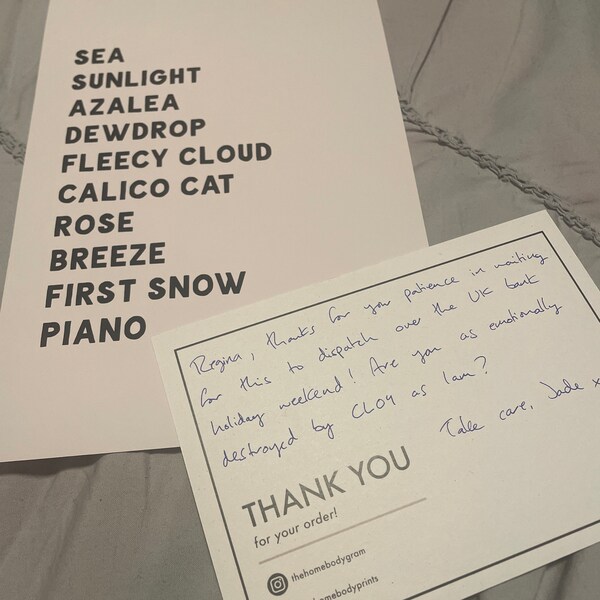 SEA
SUNLIGHT
AZALEA
DEWDROP
FLEECY CLOUD
CALICO CAT
ROSE
BREEZE
FIRST SNOW
PIANO
Regina, thanks for your patience in waiting
for this to dispatch over the UK bank
holiday weekend! Are you as emotionally
destroyed by CLOY as I am?
Take care, Jade x
THANK YOU
for your order!
thehomebodygram
homebodyprints